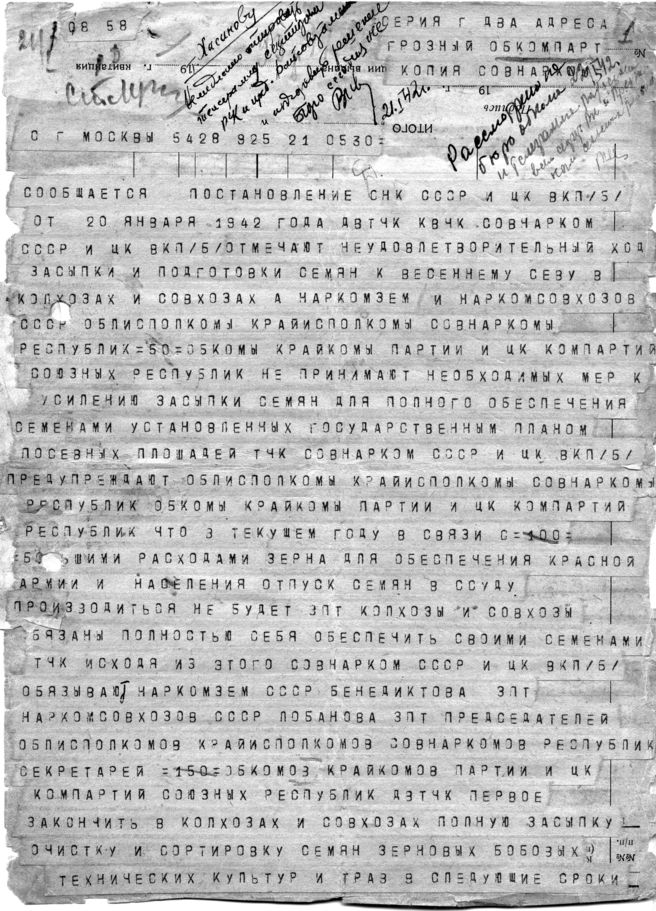 08 58
СЕРИЯ Г ДВА АДРЕСА
ГРОЗНЫЙ ОБКОМПАРТ
КОПИЯ СОВНАРКОМ
квитанция
19 г.
ИТОГО
21.I.42.
Рассмотрено на
бюро обкома
С Г МОСКВЫ 5428 925 21 0530=
СООБЩАЕТСЯ ПОСТАНОВЛЕНИЕ СНК СССР И ЦК ВКП/Б/
ОТ 20 ЯНВАРЯ 1942 ГОДА ДВТЧК КВЧК СОВНАРКОМ
СССР И ЦК ВКП/Б/ОТМЕЧАЮТ НЕУДОВЛЕТВОРИТЕЛЬНЫЙ ХОД
ЗАСЫПКИ И ПОДГОТОВКИ СЕМЯН К ВЕСЕННЕМУ СЕВУ В
КОЛХОЗАХ И СОВХОЗАХ А НАРКОМЗЕМ И НАРКОМСОВХОЗОВ
СССР ОБЛИСПОЛКОМЫ КРАЙИСПОЛКОМЫ СОВНАРКОМЫ
РЕСПУБЛИК=50=ОБКОМЫ КРАЙКОМЫ ПАРТИИ И ЦК КОМПАРТИЙ
СОЮЗНЫХ РЕСПУБЛИК НЕ ПРИНИМАЮТ НЕОБХОДИМЫХ МЕР К
УСИЛЕНИЮ ЗАСЫПКИ СЕМЯН ДЛЯ ПОЛНОГО ОБЕСПЕЧЕНИЯ
СЕМЕНАМИ УСТАНОВЛЕННЫХ ГОСУДАРСТВЕННЫМ ПЛАНОМ
ПОСЕВНЫХ ПЛОЩАДЕЙ ТЧК СОВНАРКОМ СССР И ЦК ВКП/Б/
ПРЕДУПРЕЖДАЮТ ОБЛИСПОЛКОМЫ КРАЙИСПОЛКОМЫ СОВНАРКОМЫ
РЕСПУБЛИК ОБКОМЫ КРАЙКОМЫ ПАРТИИ И ЦК КОМПАРТИЙ
РЕСПУБЛИК ЧТО В ТЕКУЩЕМ ГОДУ В СВЯЗИ С=100=
=БОЛЬШИМИ РАСХОДАМИ ЗЕРНА ДЛЯ ОБЕСПЕЧЕНИЯ КРАСНОЙ
АРМИИ И НАСЕЛЕНИЯ ОТПУСК СЕМЯН В ССУДУ
ПРОИЗВОДИТЬСЯ НЕ БУДЕТ ЗПТ КОЛХОЗЫ И СОВХОЗЫ
ОБЯЗАНЫ ПОЛНОСТЬЮ СЕБЯ ОБЕСПЕЧИТЬ СВОИМИ СЕМЕНАМИ
ТЧК ИСХОДЯ ИЗ ЭТОГО СОВНАРКОМ СССР И ЦК ВКП/Б/
ОБЯЗЫВАЮТ НАРКОМЗЕМ СССР БЕНЕДИКТОВА ЗПТ
НАРКОМСОВХОЗОВ СССР ЛОБАНОВА ЗПТ ПРЕДСЕДАТЕЛЕЙ
ОБЛИСПОЛКОМОВ КРАЙИСПОЛКОМОВ СОВНАРКОМОВ РЕСПУБЛИК
СЕКРЕТАРЕЙ =150=ОБКОМОВ КРАЙКОМОВ ПАРТИИ И ЦК
КОМПАРТИЙ СОЮЗНЫХ РЕСПУБЛИК ДВТЧК ПЕРВОЕ
ЗАКОНЧИТЬ В КОЛХОЗАХ И СОВХОЗАХ ПОЛНУЮ ЗАСЫПКУ
ОЧИСТКУ И СОРТИРОВКУ СЕМЯН ЗЕРНОВЫХ БОБОВЫХ
ТЕХНИЧЕСКИХ КУЛЬТУР И ТРАВ В СЛЕДУЮЩИЕ СРОКИ